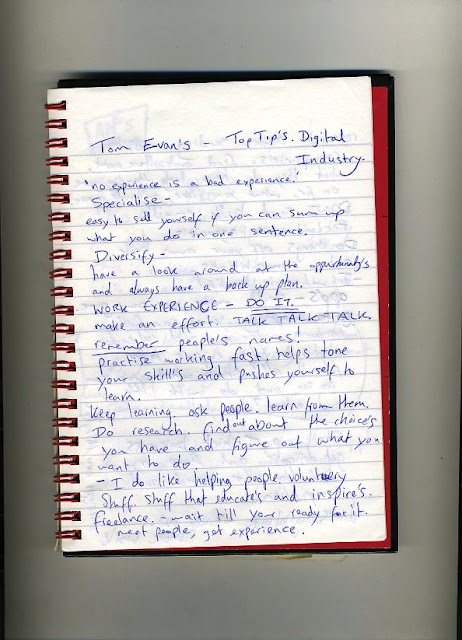 Tom Evan's - Top Tip's. Digital
Industry.
'no experience is a bad experience.'
Specialise -
easy to sell yourself if you can sum up
what you do in one sentence.
Diversify -
have a look around at the opportunity's
and always have a back up plan.
WORK EXPERIENCE - DO IT.
make an effort. TALK TALK TALK.
remember people's names!
practise working fast. helps tone
your skill's and pushes yourself to
learn.
Keep learning. ask people. learn from them.
Do research. find out about the choice's
you have and figure out what you
want to do.
- I do like helping people. voluntery
stuff. stuff that educate's and inspire's.
freelance. - wait till your ready for it.
meet people, get experience.